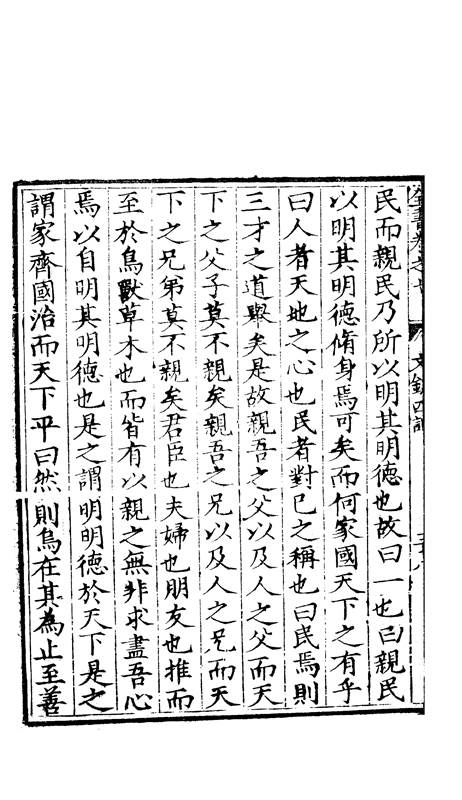 全書卷之七 文錄四記
民而親民乃所以明其明德也故曰一也曰親民
以明其明德脩身焉可矣而何家國天下之有乎
曰人者天地之心也民者對已之稱也曰民焉則
三才之道舉矣是故親吾之父以及人之父而天
下之父子莫不親矣親吾之兄以及人之兄而天
下之兄弟莫不親矣君臣也夫婦也朋友也推而
至於鳥獸草木也而皆有以親之無非求盡吾心
焉以自明其明德也是之謂明明德於天下是之
謂家齊國治而天下平曰然則烏在其為止至善